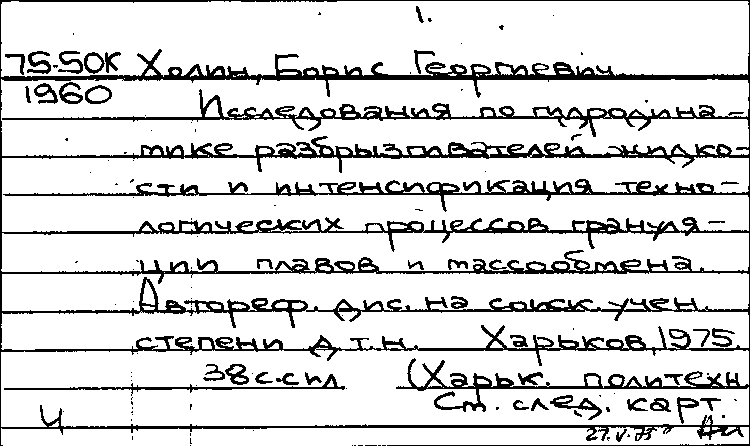 1.
75-50К Холин, Борис Георгиевич.
1960
Исследования по гидродина-
мике разбрызгивателей жидко-
сти и интенсификация техно-
логических процессов грануля-
ции плавов и массообмена.
Автореф. дис. на соиск. учен.
степени д.т.н. Харьков, 1975.
38 с. с ил. (Харьк. политехн.
См. след. карт.
Ч
27.V.75